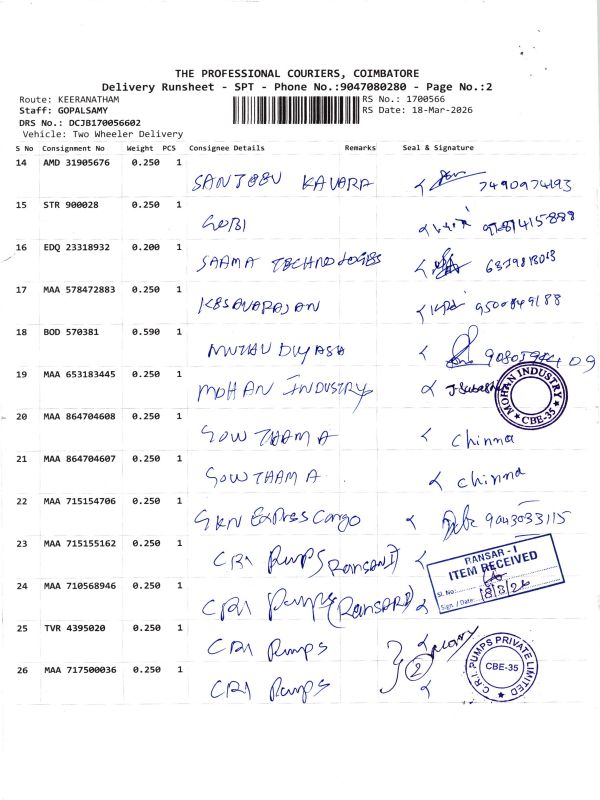 THE PROFESSIONAL COURIERS, COIMBATORE
Delivery Runsheet - SPT - Phone No.:9047080280 - Page No.:2
Route: KEERANATHAM RS No.: 1700566
Staff: GOPALSAMY RS Date: 18-Mar-2026
DRS No.: DCJB170056602
Vehicle: Two Wheeler Delivery
S No Consignment No Weight PCS Consignee Details Remarks Seal & Signature
14 AMD 31905676 0.250 1
SANJEEV KAVARA 7490974193
15 STR 900028 0.250 1
GOBI
16 EDQ 23318932 0.200 1
SAAMA TECHNOLOGIES
17 MAA 578472883 0.250 1
KESAVARAJAN 9500849188
18 BOD 570381 0.590 1
19 MAA 653183445 0.250 1
MOHAN INDUSTRY
MOHAN INDUSTRY CBE-35
20 MAA 864704608 0.250 1
GOWTHAM A Chinna
21 MAA 864704607 0.250 1
GOWTHAM A Chinna
22 MAA 715154706 0.250 1
GKN Express Cargo 9043033115
23 MAA 715155162 0.250 1
CRI Pumps
RANSAR - I
ITEM RECEIVED
Sl. No.:
Sign / Date: 18/3/26
24 MAA 710568946 0.250 1
CRI Pumps
25 TVR 4395020 0.250 1
CRI Pumps 2
C.R.I. PUMPS PRIVATE LIMITED CBE-35
26 MAA 717500036 0.250 1
CRI Pumps